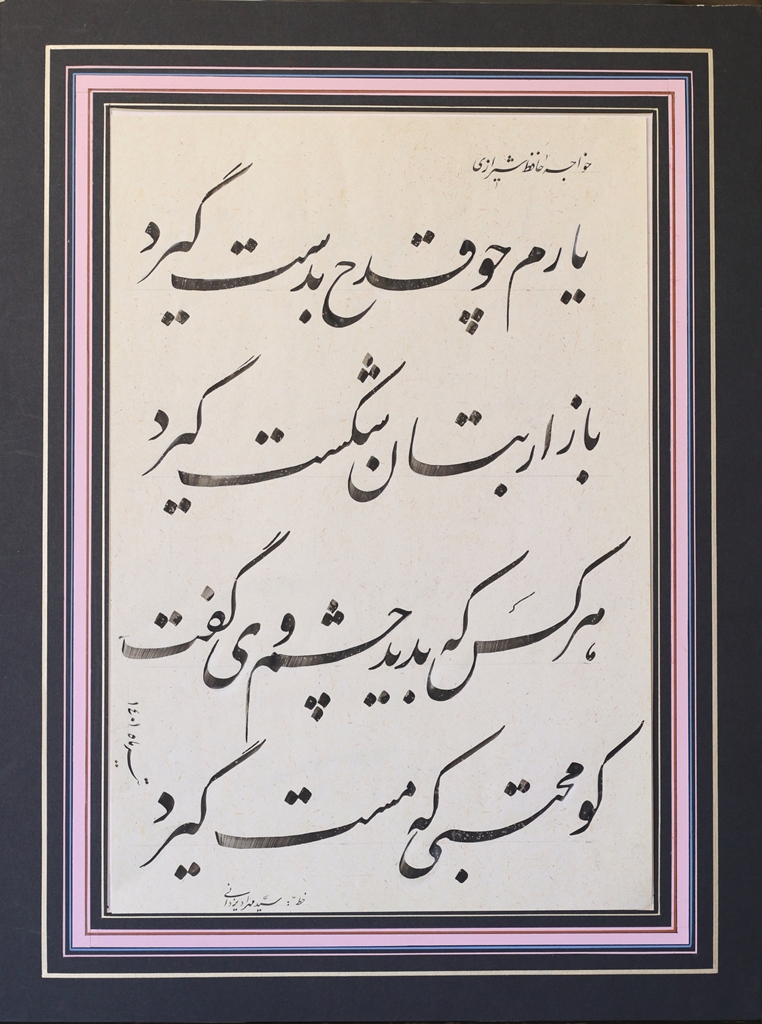 خواجه حافظ شیرازی
یارم چو قدح بدست گیرد
بازار بتان شکست گیرد
هر کس که بدید چشم وی گفت
کو محتسبی که مست گیرد
تیرماه ۱۴۰۱
خط: سید مهرداد یزدانی